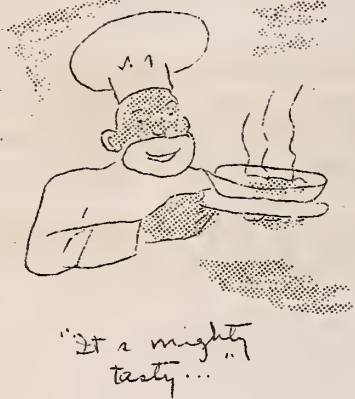 "It s mighty
tasty..."